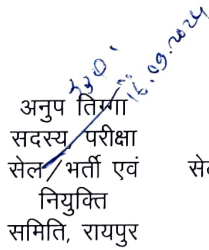 16.09.2024
अनुप तिग्गा
सदस्य, परीक्षा
सेल / भर्ती एवं
नियुक्ति
समिति, रायपुर